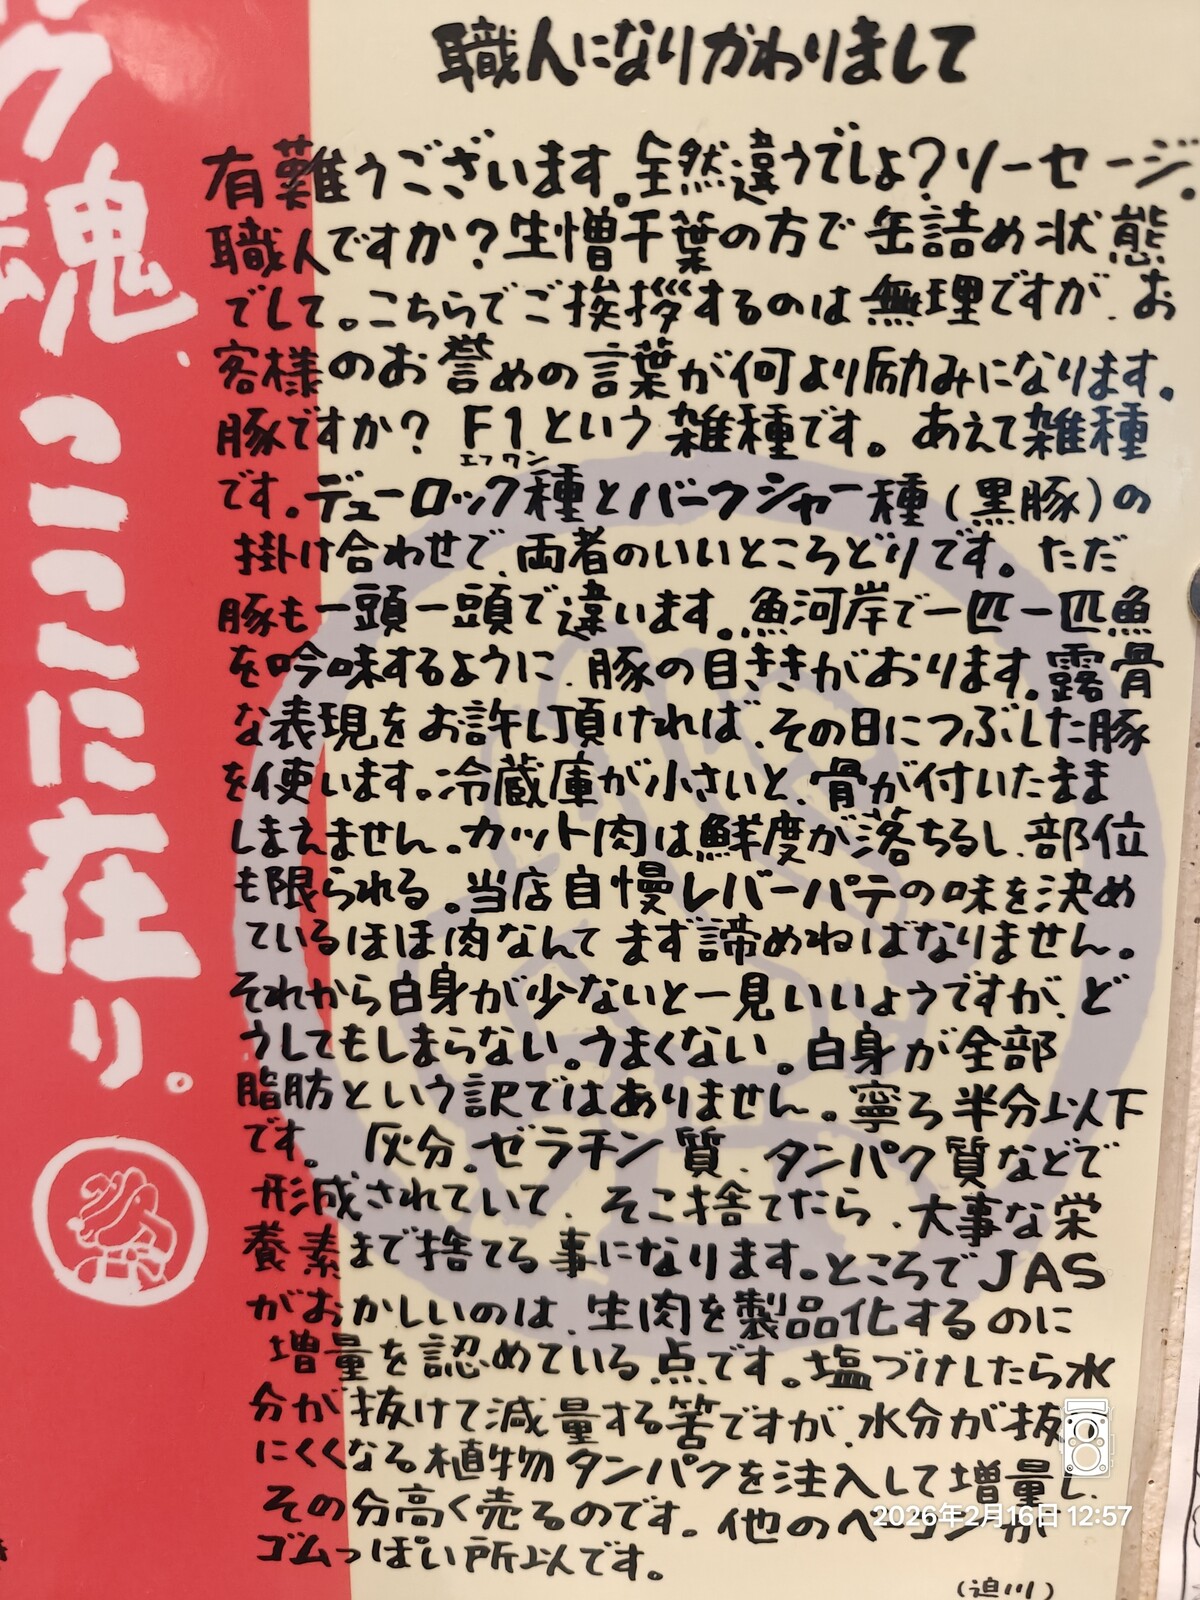 職人になりかわりまして
有難うございます。全然違うでしょ?ソーセージ。
職人ですか?生憎千葉の方で缶詰め状態
でして。こちらでご挨拶するのは無理ですが、お
客様のお誉めの言葉が何より励みになります。
豚ですか? F1という雑種です。あえて雑種
エフワン
です。デューロック種とバークシャー種(黒豚)の
掛け合わせで、両者のいいところどりです。ただ
豚も一頭一頭で違います。魚河岸で一匹一匹魚
を吟味するように、豚の目ききがおります。露骨
な表現をお許し頂ければ、その日につぶした豚
を使います。冷蔵庫が小さいと、骨が付いたまま
しまえません。カット肉は鮮度が落ちるし、部位
も限られる。当店自慢レバーパテの味を決め
ているほほ肉なんてまず諦めねばなりません。
それから白身が少ないと一見いいようですが、ど
うしてもしまらない。うまくない。白身が全部
脂肪という訳ではありません。寧ろ半分以下
です。 灰分。ゼラチン質、タンパク質などで
形成されていて、そこ捨てたら、大事な栄
養素まで捨てる事になります。ところでJAS
がおかしいのは、生肉を製品化するのに
増量を認めている点です。塩づけしたら水
分が抜けて減量する筈ですが、水分が抜
にくくなる植物タンパクを注入して増量し、
その分高く売るのです。他のベーコンが
ゴムっぽい所以です。
(迫川)
魂、ここに在り。
2026年2月16日 12:57